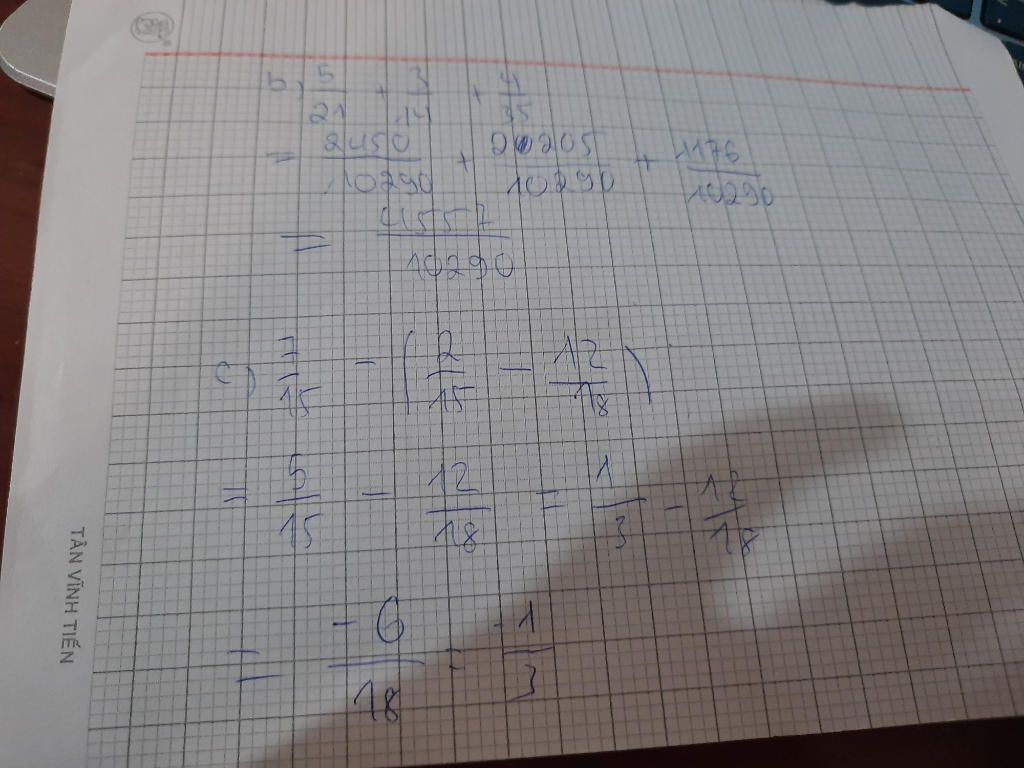 b, 5/21 + 3/14 + 4/35
= 2450/10290 + 2205/10290 + 1176/10290
= 4557/10290
c) 7/15 - (2/15 - 12/18)
= 5/15 - 12/18 = 1/3 - 12/18
= -6/18 = -1/3
TÂN VĨNH TIẾN